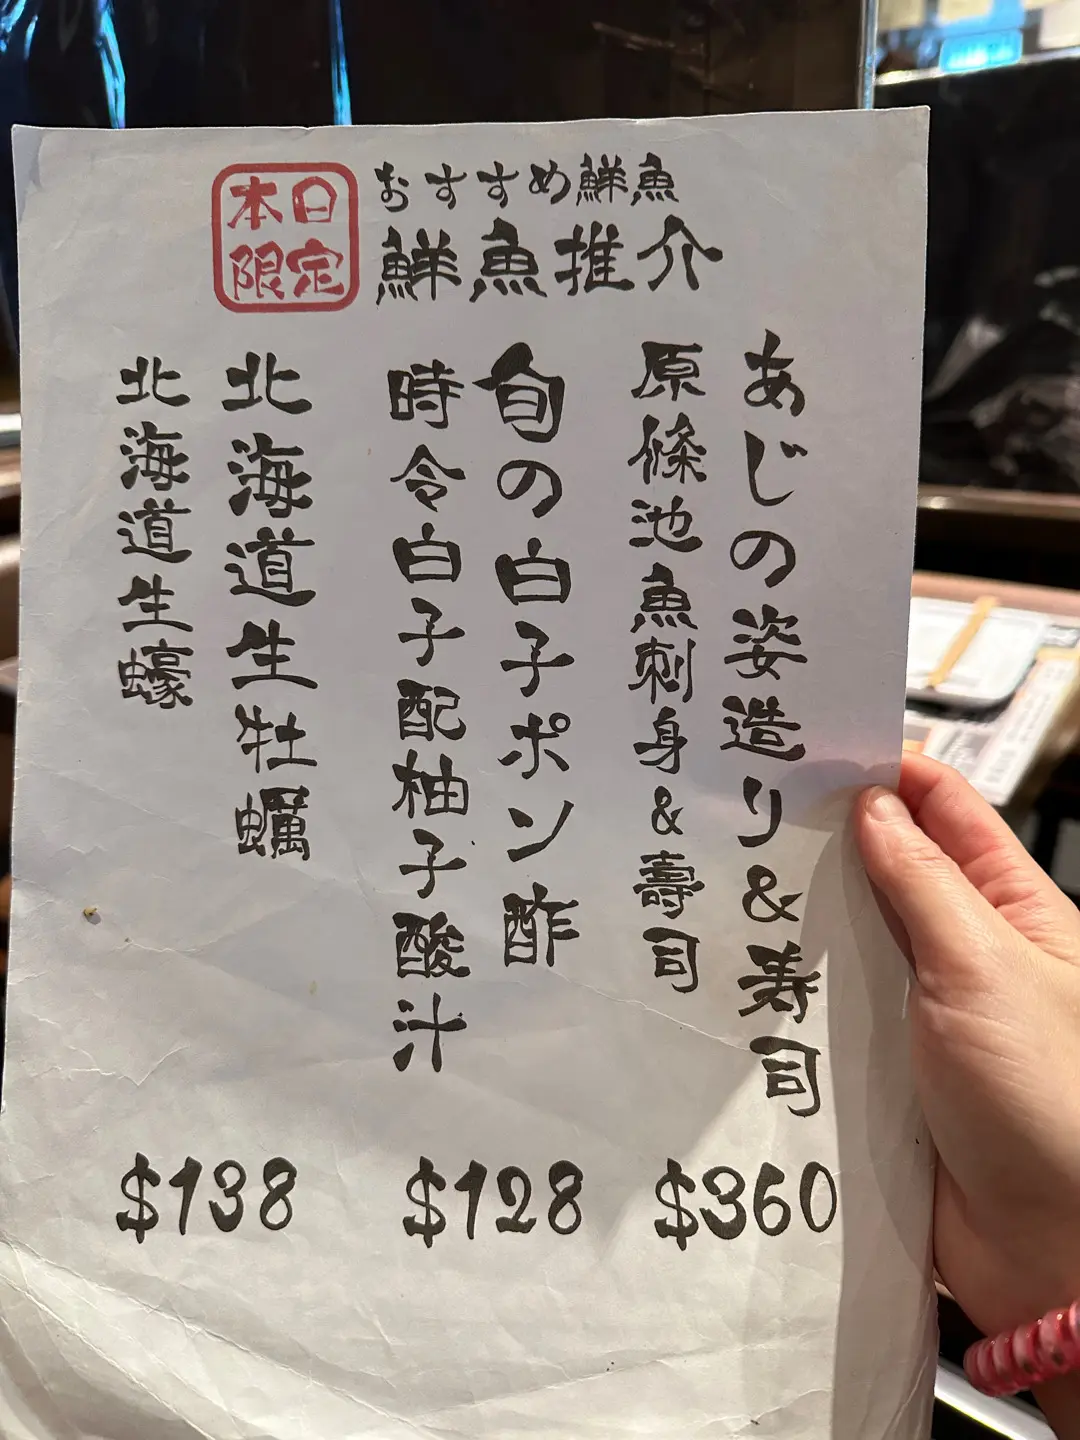 本日
限定
おすすめ鮮魚
鮮魚推介
あじの姿造り&寿司
原條池魚刺身&壽司
$360
旬の白子ポン酢
時令白子配柚子酸汁
$128
北海道生牡蠣
北海道生蠔
$138